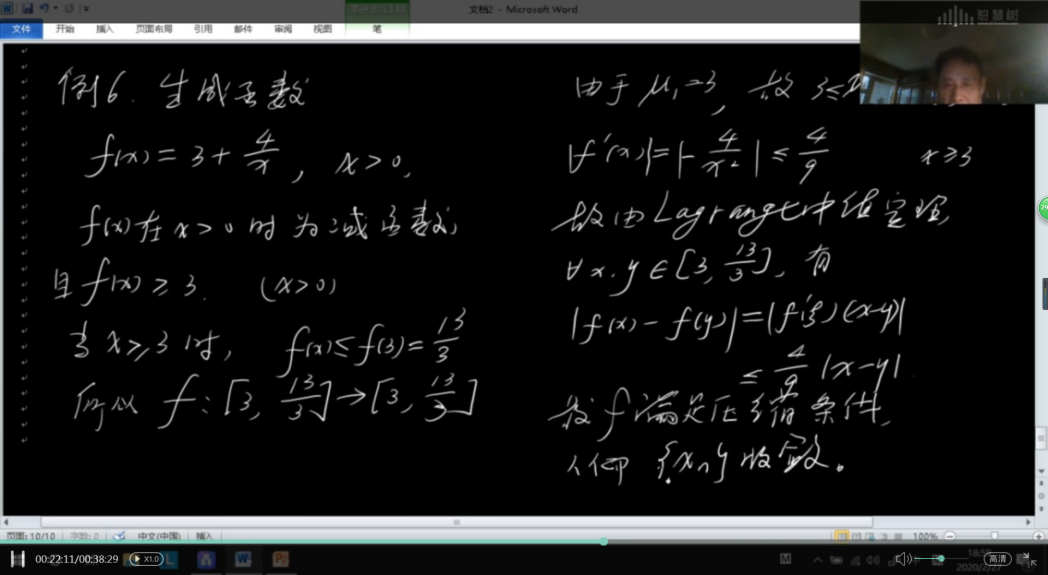 文档2 - Microsoft Word
智慧树
文件 开始 插入 页面布局 引用 邮件 审阅 视图 笔
例6. 生成函数
f(x) = 3 + 4/x, x > 0,
f(x)在 x > 0 时为减函数,
且 f(x) ≥ 3. (x > 0)
当 x ≥ 3 时, f(x) ≤ f(3) = 13/3
所以 f: [3, 13/3] → [3, 13/3]
由于 μ₁ = 3, 故 3 ≤
|f'(x)| = |-4/x²| ≤ 4/9 x ≥ 3
故由Lagrange中值定理,
∀x, y ∈ [3, 13/3], 有
|f(x) - f(y)| = |f'(ξ)(x-y)|
≤ 4/9 |x-y|
故 f 满足压缩条件,
从而 {xₙ} 收敛.
页面: 10/10 字数: 0 中文(中国) 插入 100%
00:22:11/00:38:29 X1.0 高清
2020/2/27